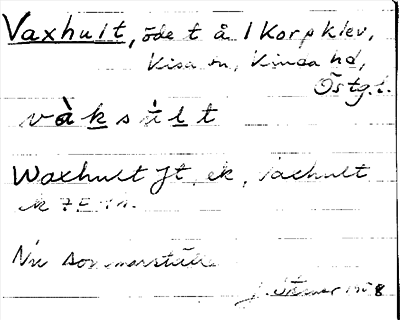 Vaxhult, öde t å 1 Korpklev,
Kisa sn, Kinda hd,
Östg.l.
vàksùlt
Waxhult Jt, ek, Vaxhult
Nu sommarställe
J. 1958